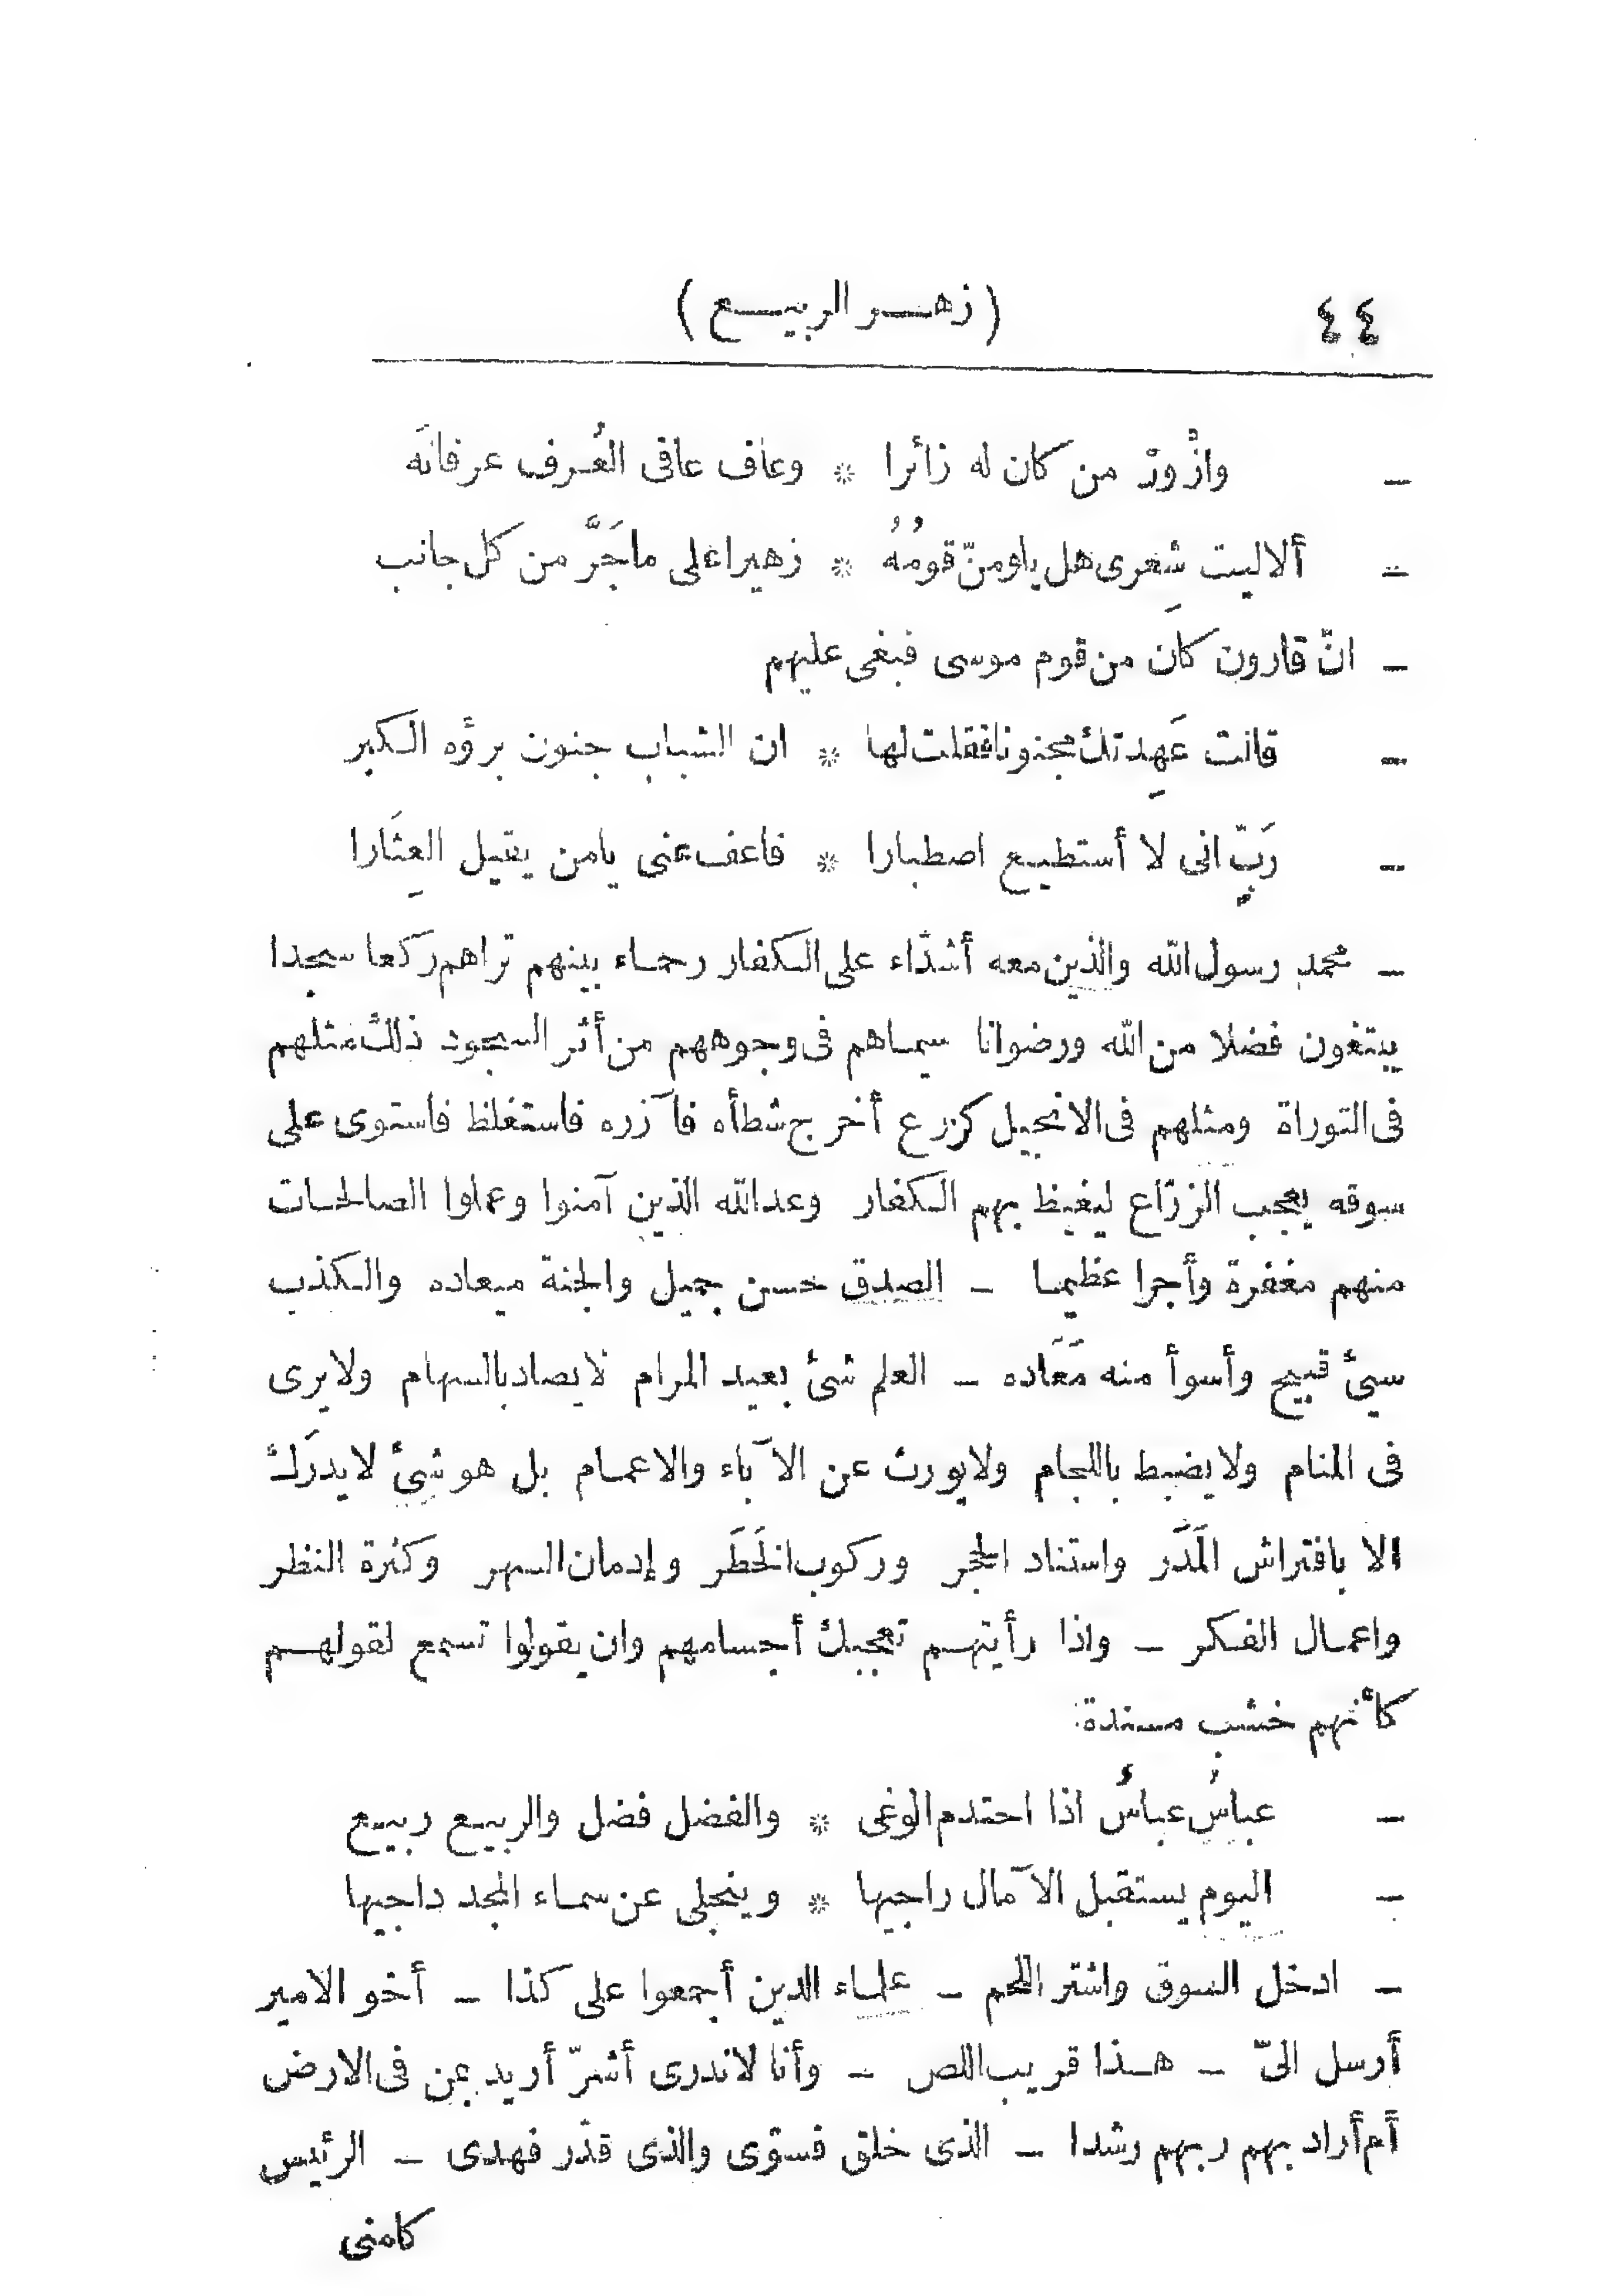 ٤٤
( زهـر الربيـع )
– وازْورّ من كان له زائرا * وعاف عافى العُرف عرفانَه
– ألا ليت شِعرى هل يلومنّ قومُهُ * زهيرا على ما جَرَّ من كل جانب
– انّ قارون كان من قوم موسى فبغى عليهم
– قالت عَهِدتك مجنونا فقلت لها * ان الشباب جنون برؤه الكبر
– رَبِّ انى لا أستطيع اصطبارا * فاعف عنى يا من يقيل العِثَارا
– محمد رسول الله والذين معه أشدّاء على الكفار رحماء بينهم تراهم ركعا سجدا
يبتغون فضلا من الله ورضوانا سيماهم فى وجوههم من أثر السجود ذلك مثلهم
فى التوراة ومثلهم فى الانجيل كزرع أخرج شطأه فآزره فاستغلظ فاستوى على
سوقه يعجب الزرّاع ليغيظ بهم الكفار وعد الله الذين آمنوا وعملوا الصالحات
منهم مغفرة وأجرا عظيما – الصدق حسن جميل والجنة ميعاده والكذب
سيئ قبيح وأسوأ منه مَعَاده – العلم شئ بعيد المرام لا يصاد بالسهام ولا يرى
فى المنام ولا يضبط باللجام ولا يورث عن الآباء والاعمام بل هو شئ لا يدرَك
الا بافتراش المَدَر واستناد الحجر وركوب الخَطَر وإدمان السهر وكثرة النظر
واعمال الفكر – واذا رأيتهم تعجبك أجسامهم وان يقولوا تسمع لقولهم
كأنهم خشب مسندة
– عباسُ عباسٌ اذا احتدم الوغى * والفضل فضل والربيع ربيع
– اليوم يستقبل الآمال راجيها * وينجلى عن سماء المجد داجيها
– ادخل السوق واشتر اللحم – علماء الدين أجمعوا على كذا – أخو الامير
أرسل الىّ – هـذا قريب اللص – وأنا لا ندرى أشرّ أريد بمن فى الارض
أم أراد بهم ربهم رشدا – الذى خلق فسوّى والذى قدّر فهدى – الرئيس
كلمنى